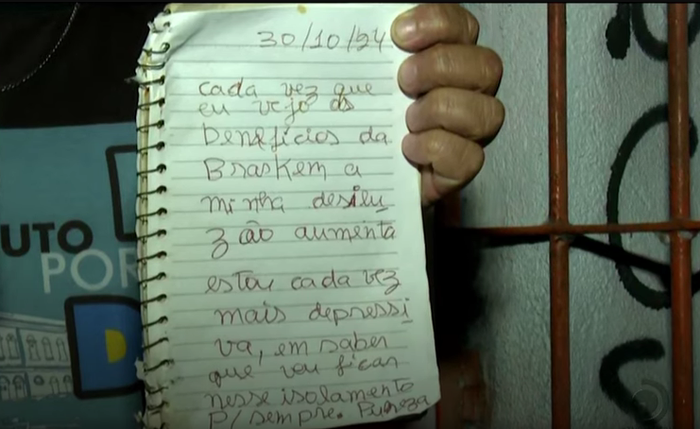 30/10/24
cada vez que
eu vejo os
benefícios da
Braskem a
minha desilu
zão aumenta
estou cada vez
mais depressi
va, em saber
que vou ficar
nesse isolamento
P/ sempre.
UTO
POR